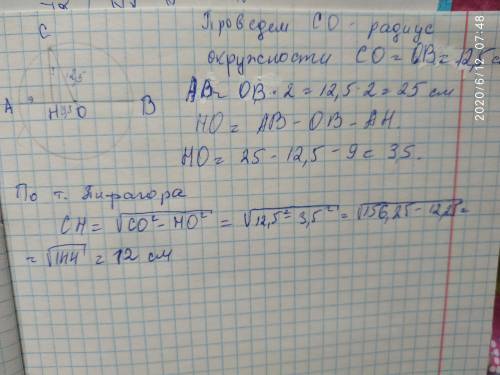 Проведем CO - радиус
окружности CO = OB = 12,5 см
AB = OB · 2 = 12,5 · 2 = 25 см
HO = AB - OB - AH.
HO = 25 - 12,5 - 9 = 3,5.
C
12,5
A 9 H 3,5 O B
По т. Пифагора
CH = √CO² - HO² = √12,5² - 3,5² = √156,25 - 12,25 =
= √144 = 12 см
2020/6/12 07:48